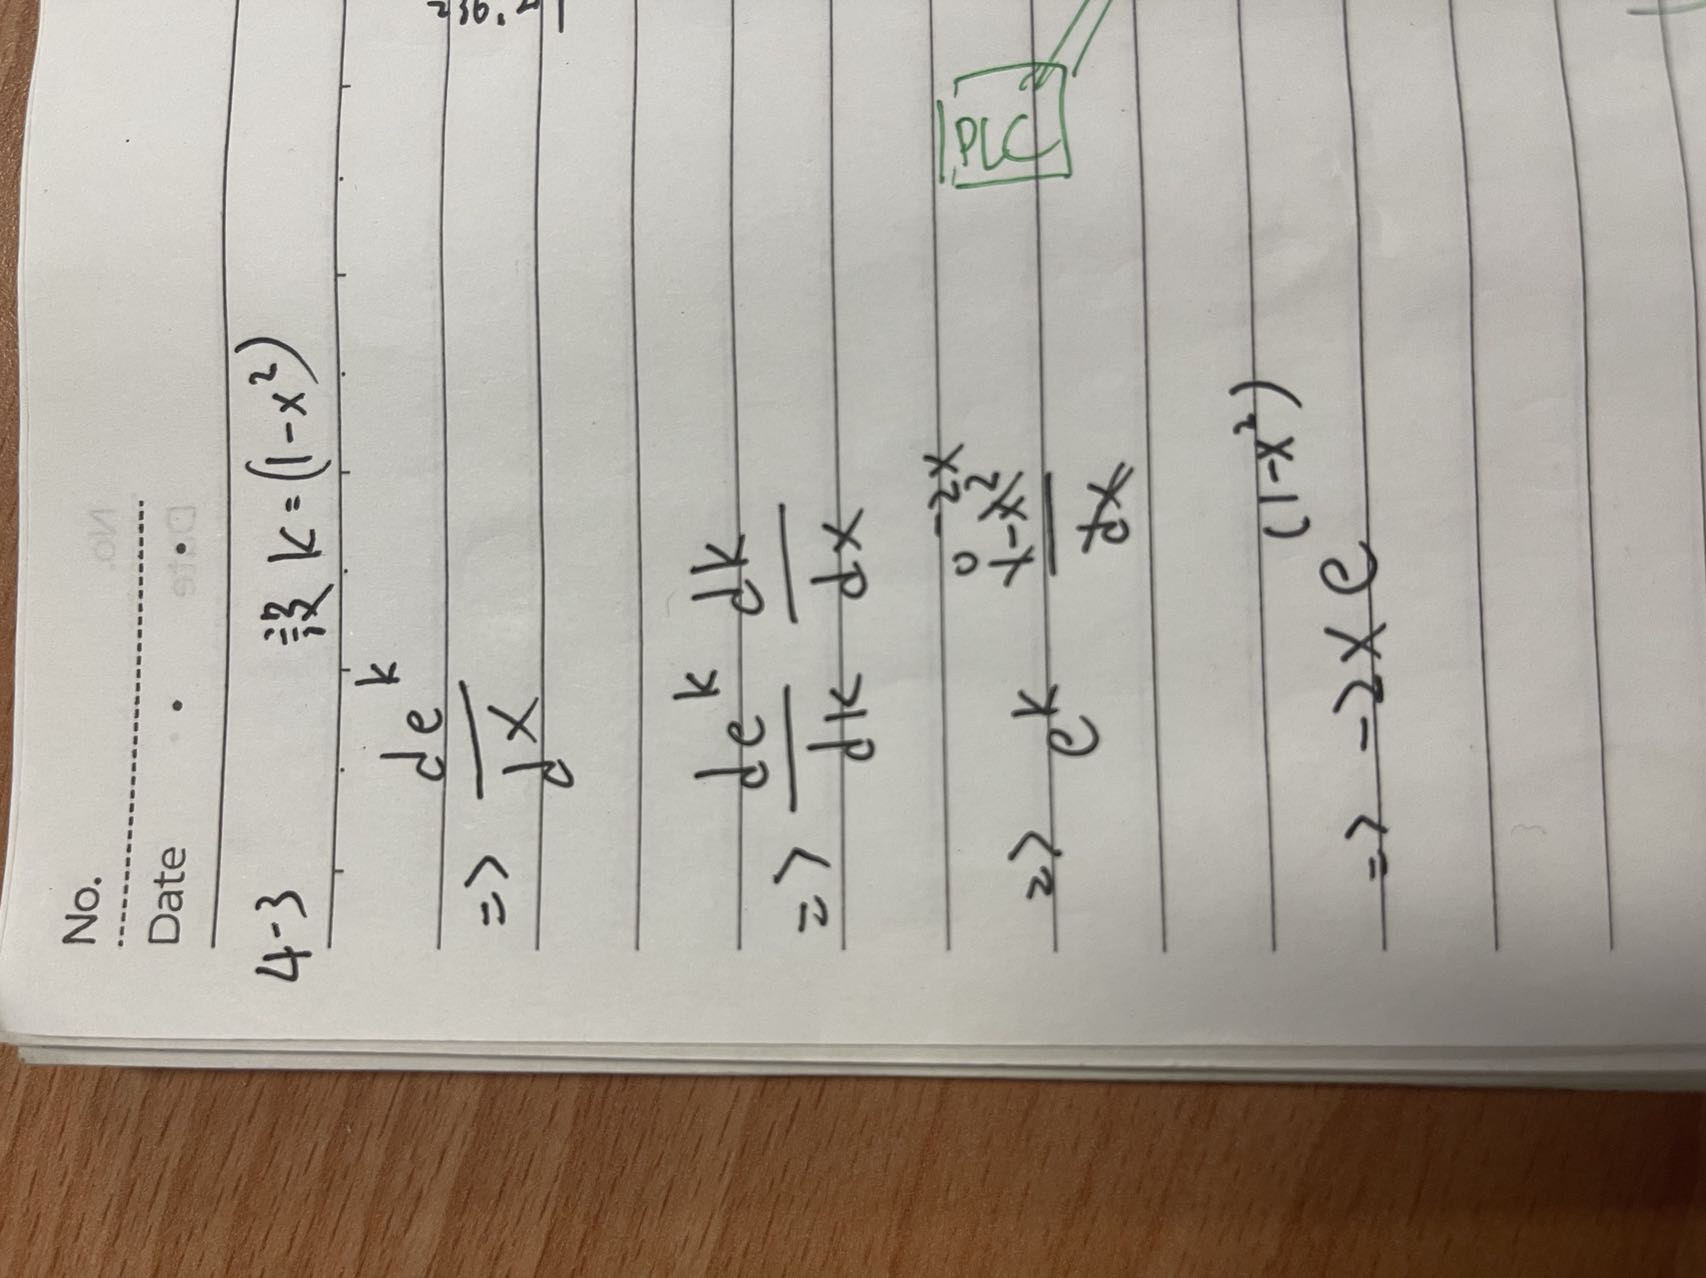 No.
Date
4-3 設 k=(1-x²)
=> de^k
dx
=> de^k dk
dk dx
=> e^k 0 -2x
1-x²
dx
PLC
=> -2x e^(1-x²)